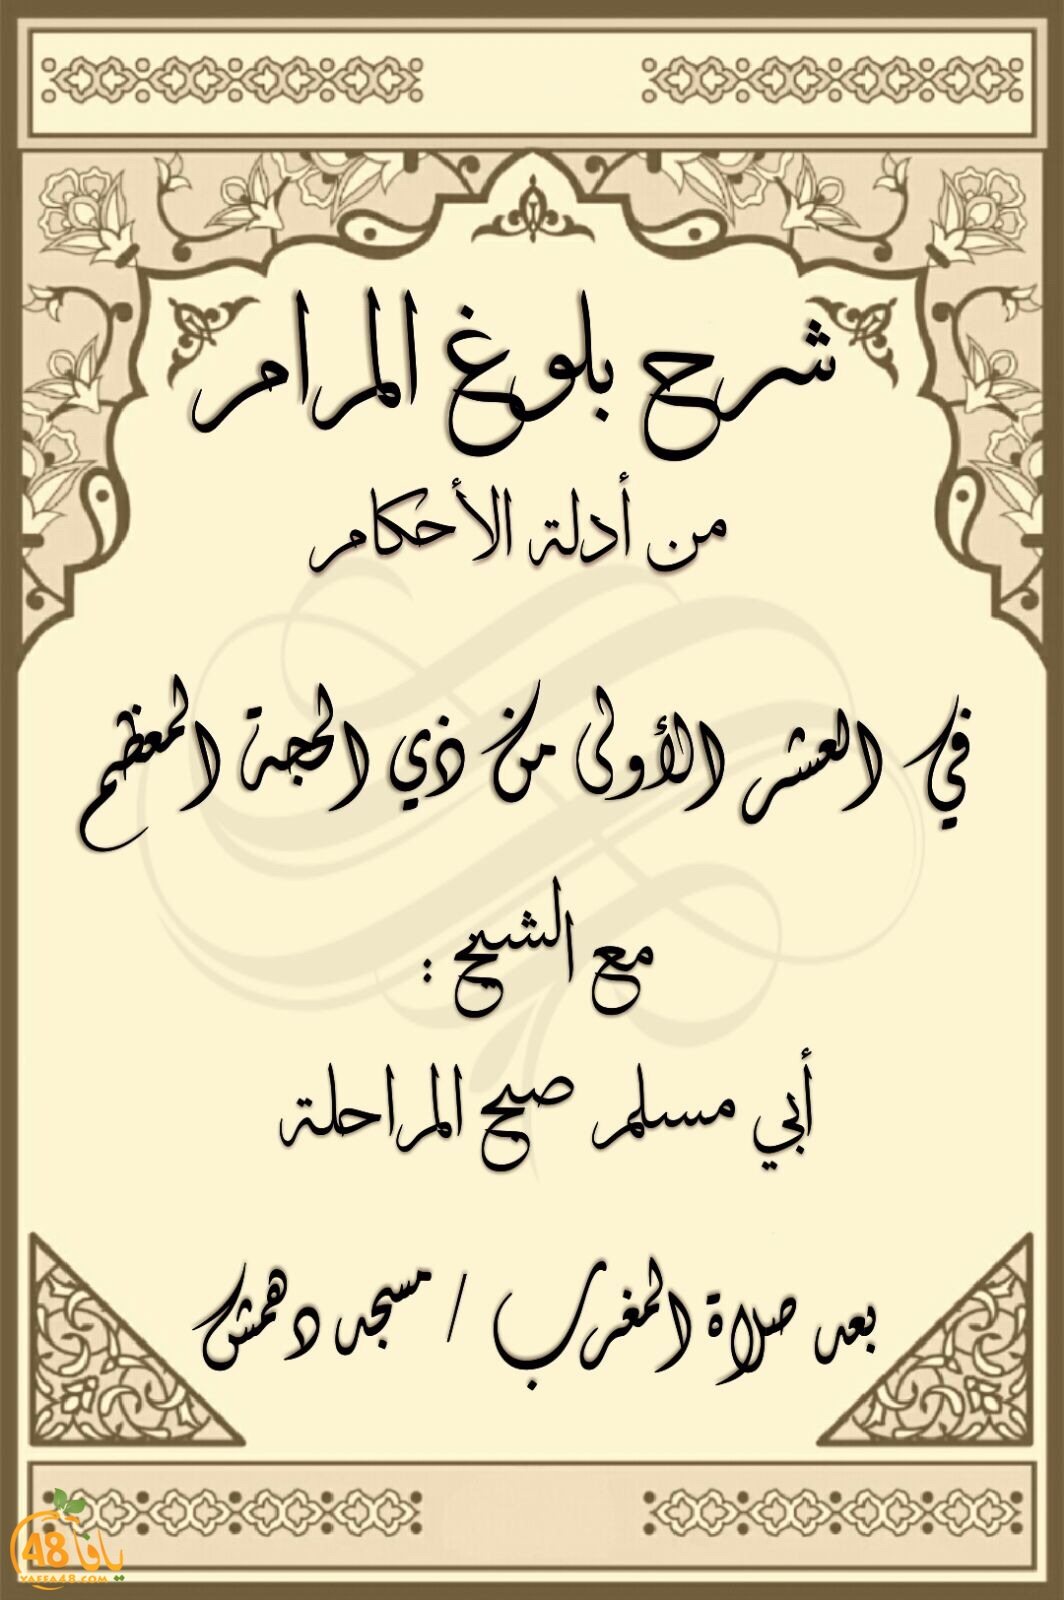 شرح بلوغ المرام
من أدلة الأحكام
في العشر الأولى من ذي الحجة المعظم
مع الشيخ :
أبي مسلم صبح المراحلة
بعد صلاة المغرب / مسجد دهمش
يافا 48
YAFFA48.COM